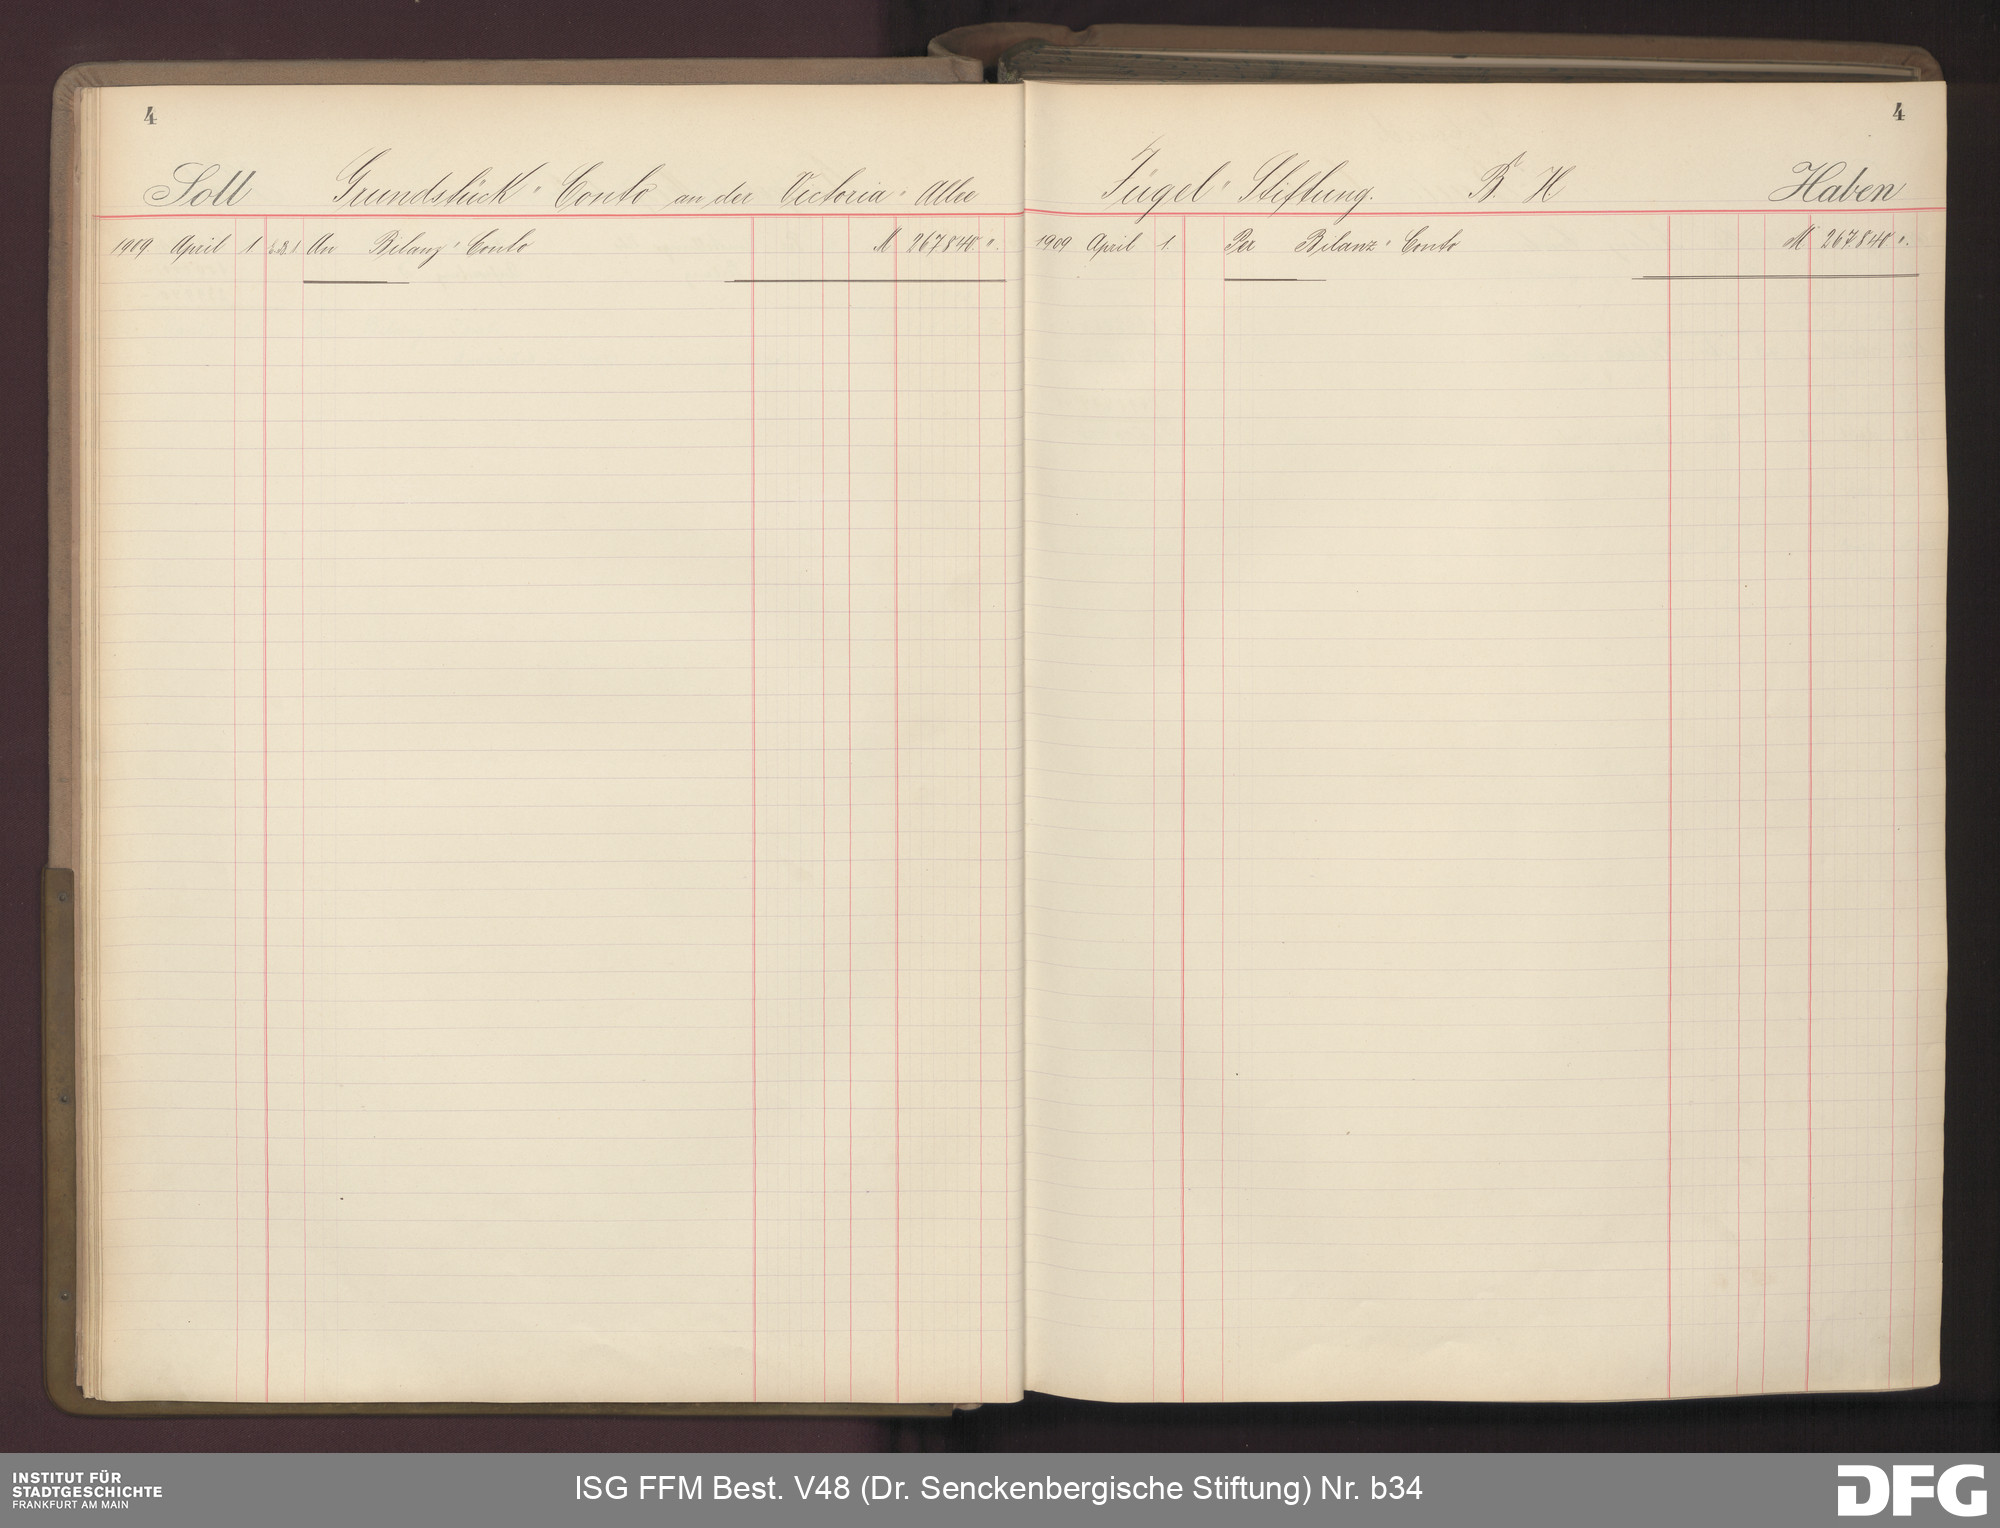 4
Soll Grundstück-Conto an der Victoria-Allee
1909 April 1 An Bilanz-Conto M 267840 ".
4
Jügel-Stiftung. B. H Haben
1909 April 1 Per Bilanz-Conto M 267.840 ".
INSTITUT FÜR
STADTGESCHICHTE
FRANKFURT AM MAIN
ISG FFM Best. V48 (Dr. Senckenbergische Stiftung) Nr. b34
DFG